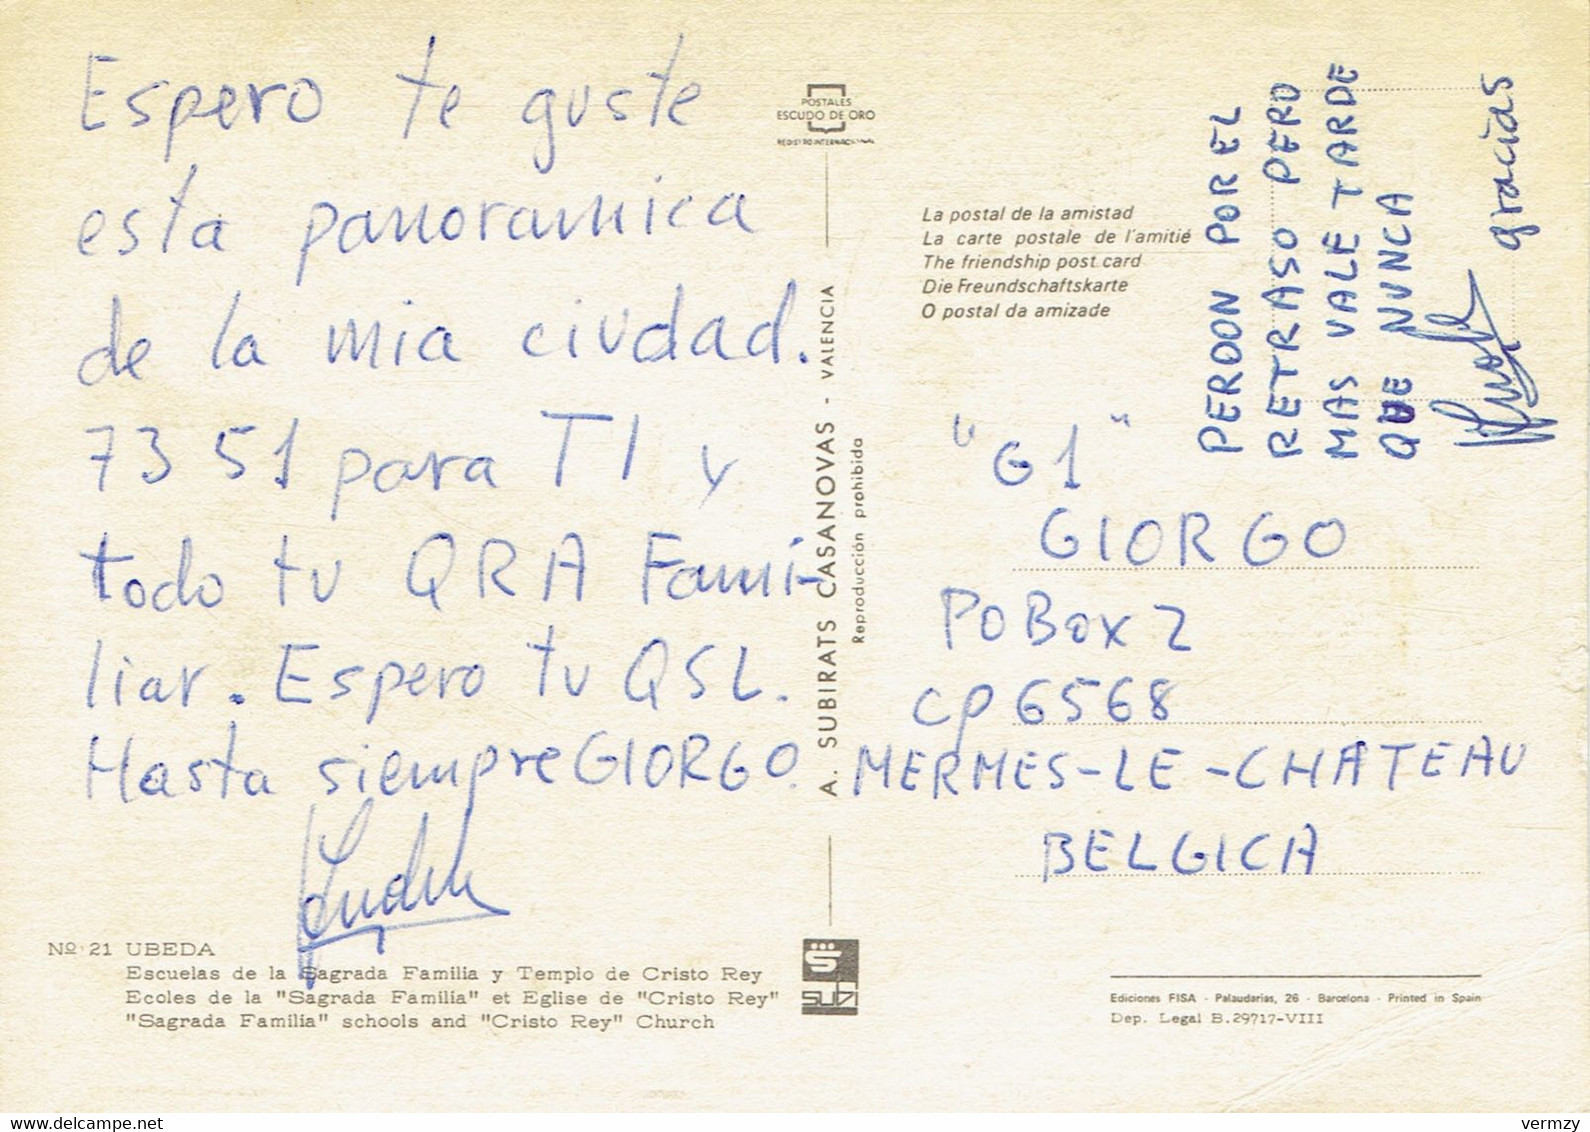 Espero te guste
esta panoramica
de la mia ciudad.
73 51 para TI y
todo tu QRA Fami-
liar. Espero tu QSL.
Hasta siempre GIORGO.
Nº 21 UBEDA
Escuelas de la Sagrada Familia y Templo de Cristo Rey
Ecoles de la "Sagrada Familia" et Eglise de "Cristo Rey"
"Sagrada Familia" schools and "Cristo Rey" Church
POSTALES
ESCUDO DE ORO
REGISTRO INTERNACIONAL
A. SUBIRATS CASANOVAS - VALENCIA
Reproducción prohibida
SUBI
La postal de la amistad
La carte postale de l'amitié
The friendship post card
Die Freundschaftskarte
O postal da amizade
PERDON POR EL
RETRASO PERO
MAS VALE TARDE
QUE NUNCA
gracias
"G1"
GIORGO
PO Box 2
CP 6568
MERMES-LE-CHATEAU
BELGICA
Ediciones FISA - Palaudarias, 26 - Barcelona - Printed in Spain
Dep. Legal B.29717-VIII
delcampe.net
vermzy